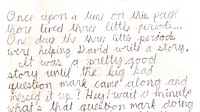 Once upon a time on this page
there lived three little periods...
One day the three little periods
were helping David write a story.
It was a pretty good
story until the big bad
question mark came along and
messed it up! Hey! wait a minute
what's that question mark doing